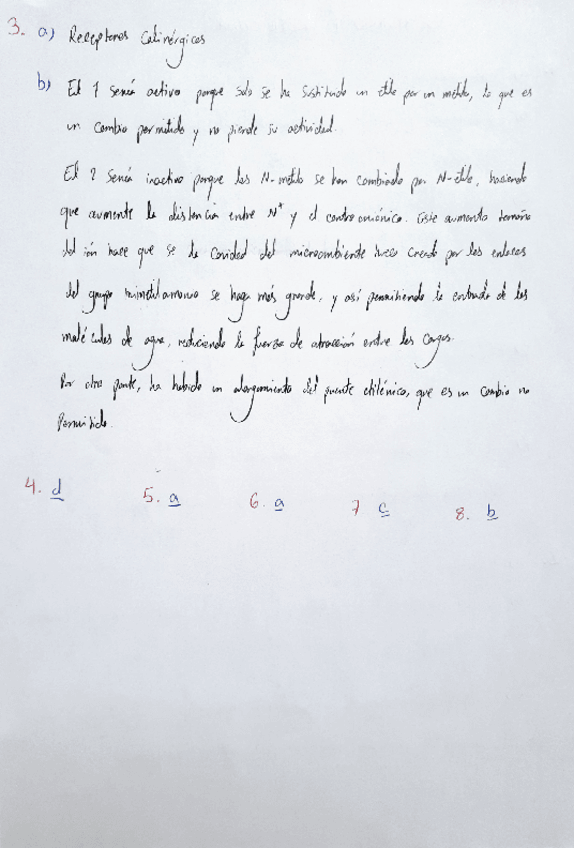 3. a) Receptores Colinérgicos
b) El 1 sería activo porque solo se ha sustituido un etilo por un metilo, lo que es
un cambio permitido y no pierde su actividad.
El 2 sería inactivo porque los N-metilo se han cambiado por N-etilo, haciendo
que aumente la distancia entre N⁺ y el centro aniónico. Este aumento tamaño
del ión hace que se la cavidad del microambiente hueco creado por los enlaces
del grupo trimetilamonio se haga más grande, y así permitiendo la entrada de las
moléculas de agua, reduciendo la fuerza de atracción entre las cargas.
Por otra parte, ha habido un alargamiento del puente etilénico, que es un cambio no
permitido.
4. d 5. a 6. a 7 c 8. b